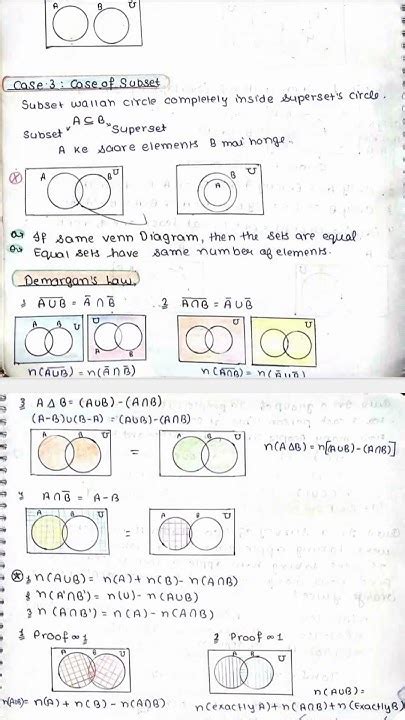 A B
Case 3: Case of Subset
Subset wallah circle completely inside superset's circle.
A ⊆ B
Subset Superset
A ke saare elements B mai honge.
A B U B U
A
If same venn Diagram, then the sets are equal
Equal sets have same number of elements.
Demorgan's Law
A̅U̅B̅ = A̅ ∩ B̅ 2 A̅∩̅B̅ = A̅ U B̅
A B U U A B A B U A B U
n(A̅U̅B̅) = n(A̅ ∩ B̅) n(A̅∩̅B̅) = n(A̅ U B̅)
3 A Δ B = (AUB) - (A∩B)
(A-B)U(B-A) = (AUB) - (A∩B)
A B U = A B U n(AΔB) = n[(AUB) - (A∩B)]
A∩B̅ = A-B
A B U = A B U
1 n(AUB) = n(A) + n(B) - n(A∩B)
2 n(A'∩B') = n(U) - n(AUB)
3 n(A∩B') = n(A) - n(A∩B)
1 Proof ∞ 1 2 Proof ∞ 1
A B U A B U
n(AUB) =
n(AUB) = n(A) + n(B) - n(A∩B) n(exactly A) + n(A∩B) + n(Exactly B)